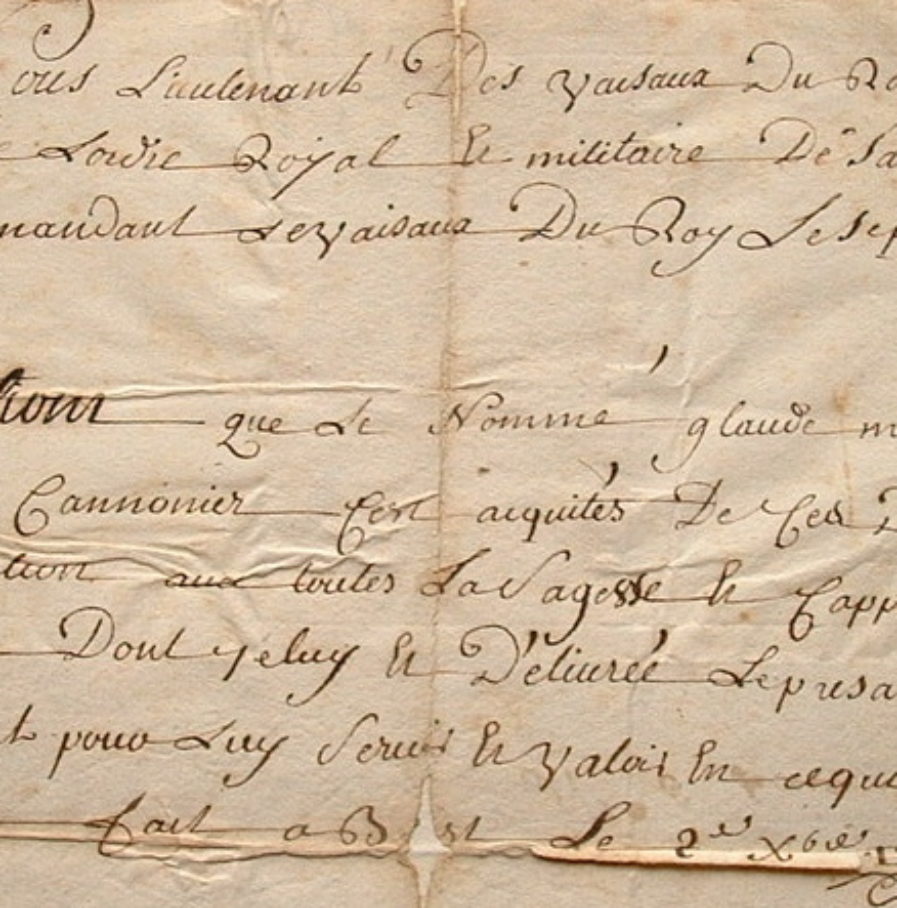 ous Lieutenant Des vaisaux Du Ro
e Lordre Royal Et militaire De Sa
mandant Levaisaux Du Roy Le Sep
tions que Le Nommé glaude m
Cannonier Cest aquités De Ces D
tion avec toutes La Sagesse Et Capp
Dont jeluy Et Déliurée Le presa
t pour Luy Servir Et Valoir En cequi
fait a B st Le 2 Xbre